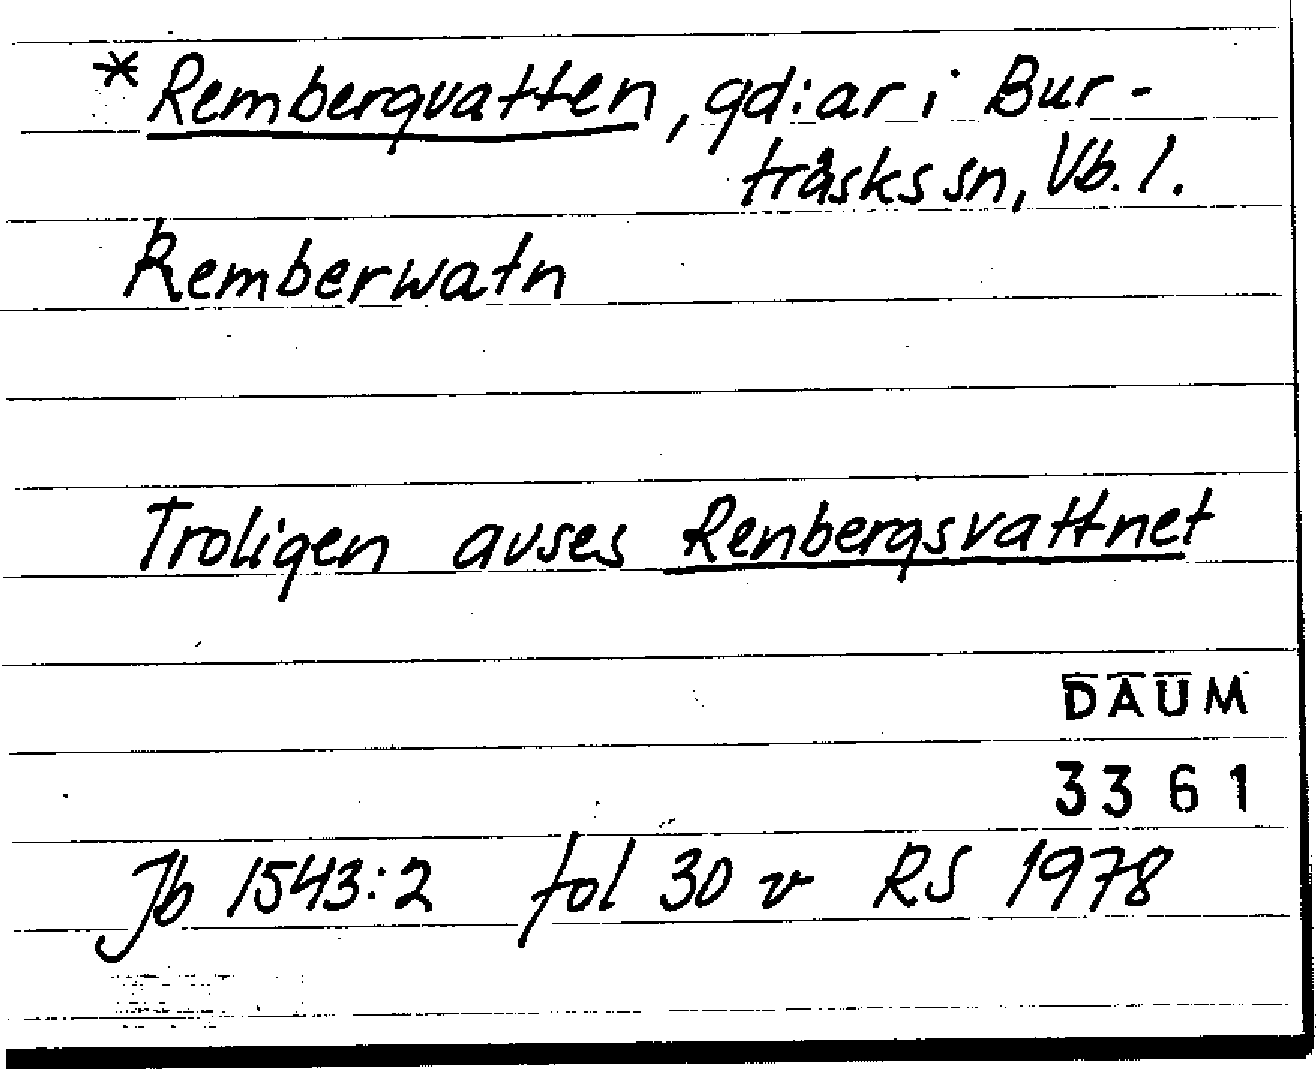 * Rembergvatten, gd:ar i Bur-
träsks sn, Vb. l.
Remberwatn
Troligen avses Renbergsvattnet
DAUM
3361
Jb 1543:2 fol 30 v RS 1978